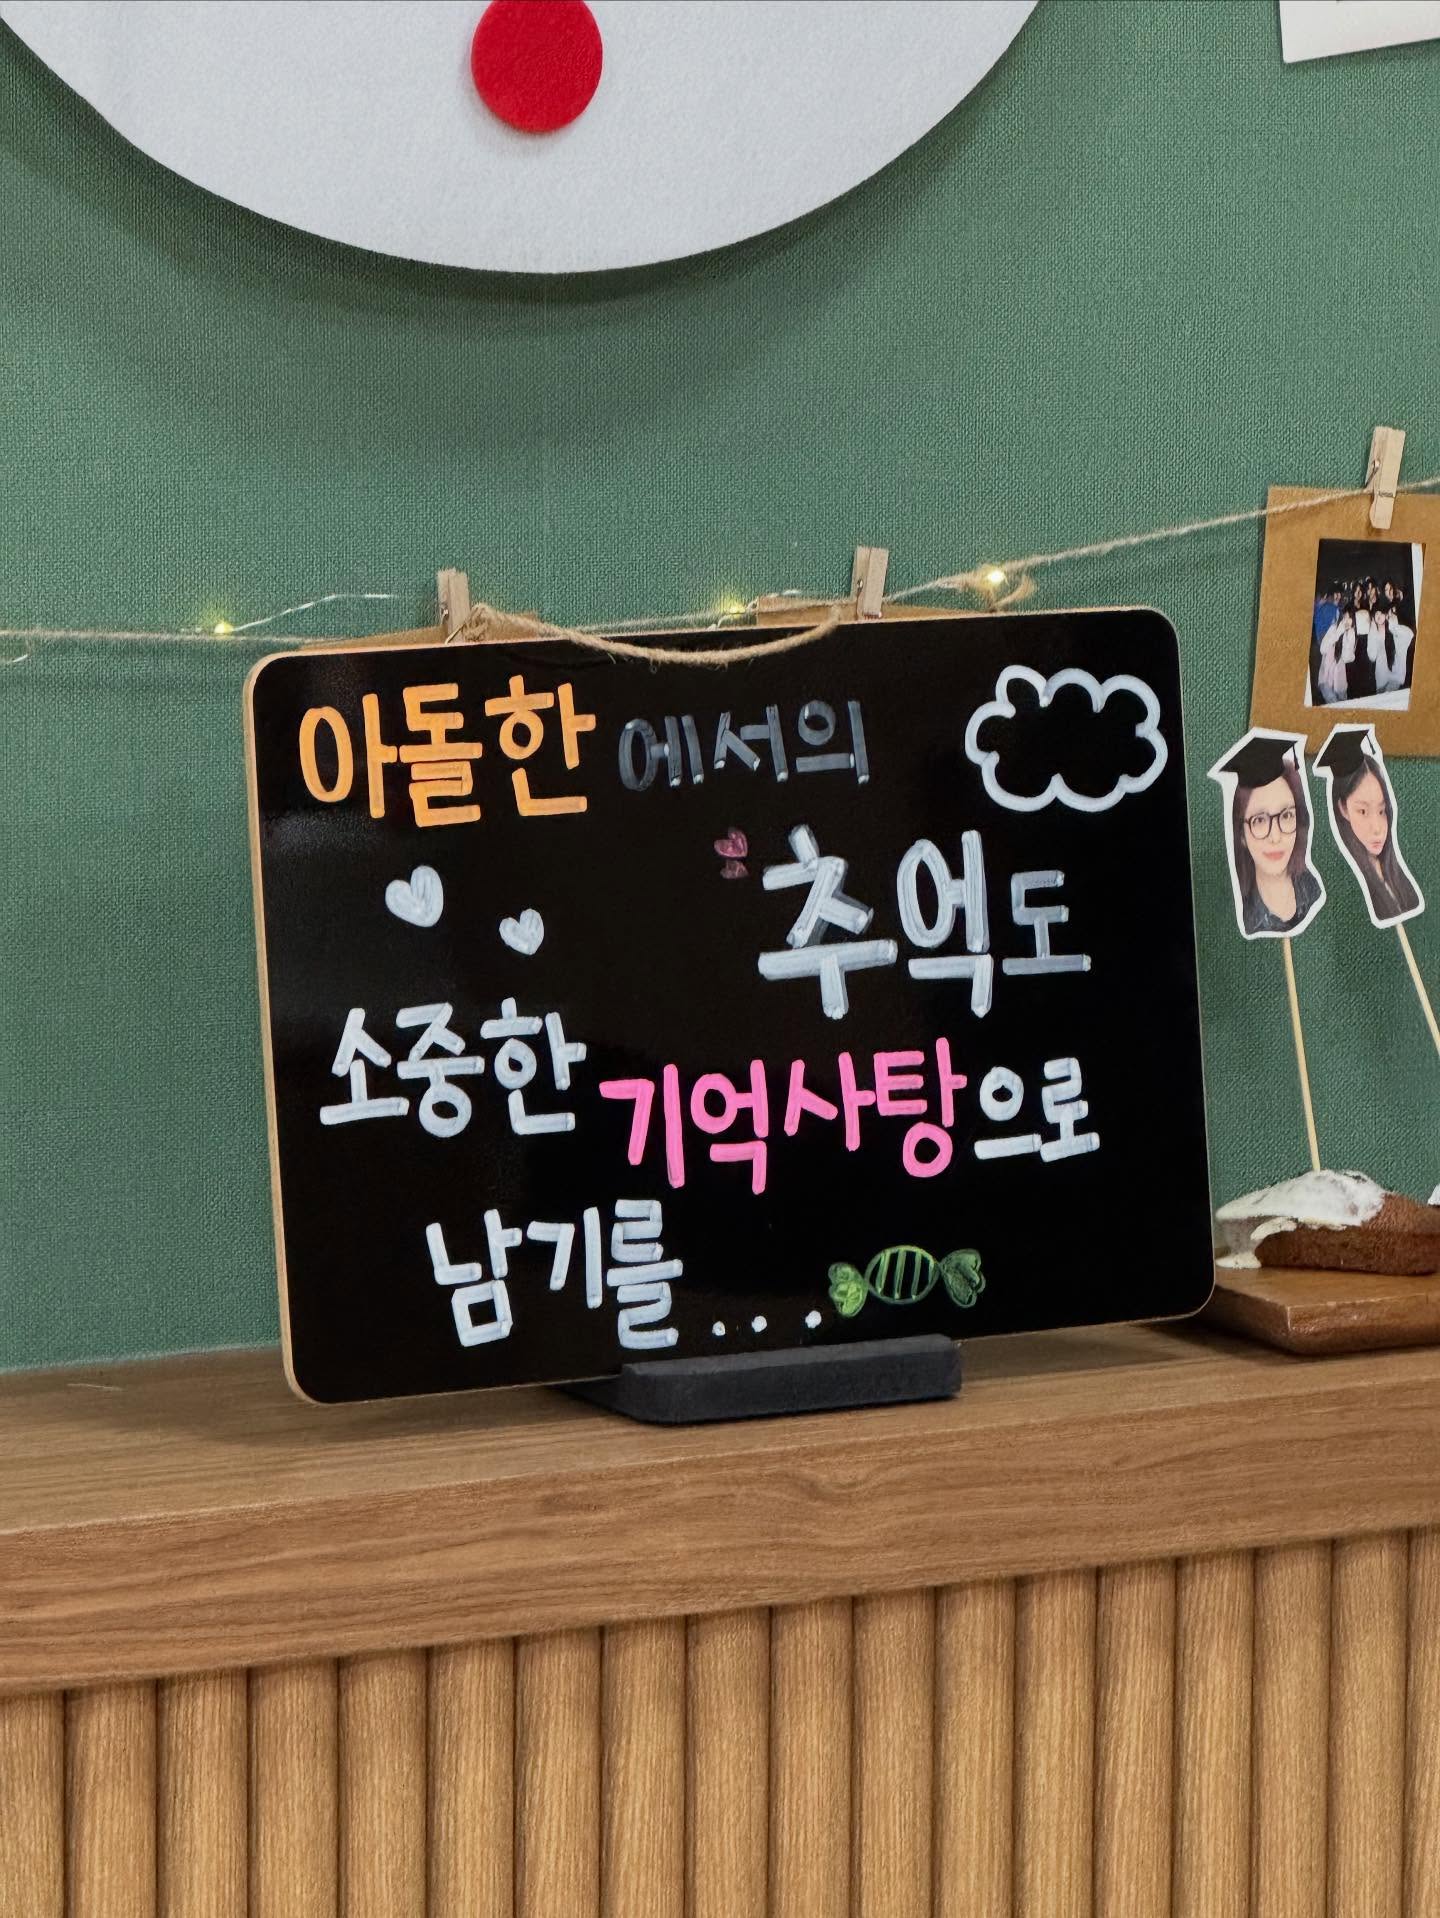 아돌한 에서의
추억도
소중한 기억사탕으로
남기를...